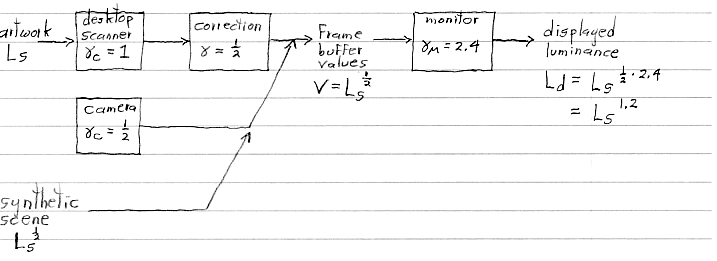 artwork
Ls
desktop
scanner
γc = 1
correction
γ = 1/2
Frame
buffer
values
V = Ls^1/2
monitor
γM = 2.4
displayed
luminance
Ld = Ls^1/2·2.4
= Ls^1.2
camera
γc = 1/2
synthetic
scene
Ls^1/2